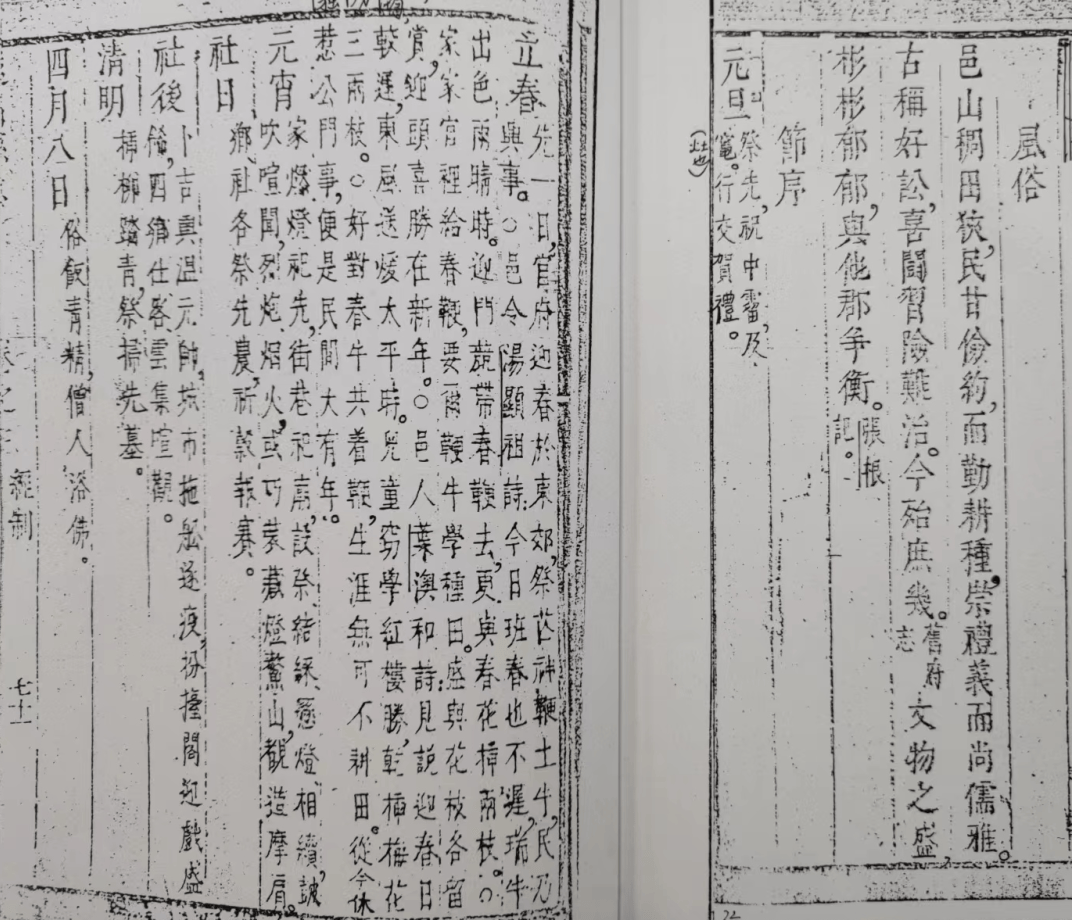 風俗
邑山稠田狹,民甘儉約,而勤耕種,崇禮義而尚儒雅。
古稱好訟,喜鬪習險難治。今殆庶幾。舊府志 文物之盛,
彬彬郁郁,與他郡爭衡。張根記。
節序
元旦 祭先,祝中霤,及
竈。行交賀禮。
立春 先一日,官府迎春於東郊,祭芒神鞭土牛,民乃
與事。○邑令湯顯祖詩:今日班春也不遲,瑞牛
出色雨晴時。迎門競帶春鞭去,更與春花插兩枝。○
家家官裡給春鞭,要爾鞭牛學種田。盛與花枝各留
賞,迎頭喜勝在新年。○邑人葉澳和詩:見說迎春日
較遲,東風送煖太平時。兒童窈學紅樓勝,乾插梅花
三兩枝。○好對春牛共着鞭,生涯無可不耕田。從今休
惹公門事,便是民間大有年。
元宵 家燃燈祀先,街巷祀廟,設祭結綵懸燈,相續,鼓
吹喧闐,烈炮焰火,或巧裝藏燈鰲山,觀造摩肩。
社日 鄉社各祭先農,祈穀報賽。
社後 卜吉與溫元帥,市拖船逐疫,扮擡閣迎戲盛
餙,四鄉仕客雲集喧觀。
清明 插柳踏青,祭掃先墓。
四月八日 俗飯青精,僧人浴佛。
雜制 七十